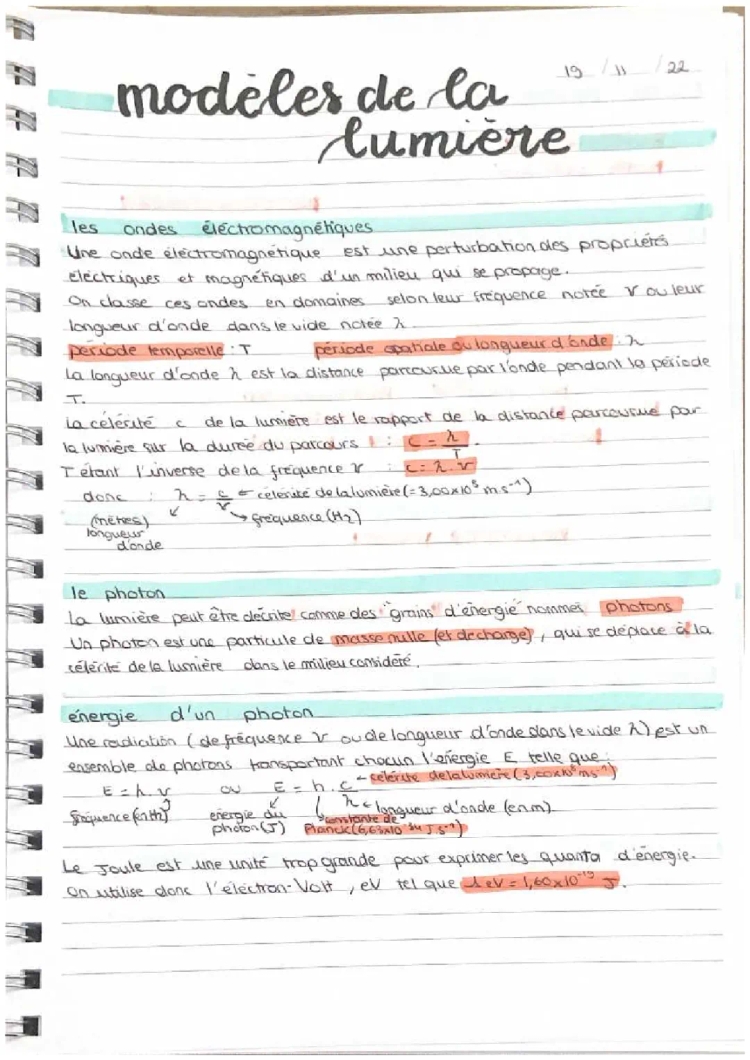 19 / 11 / 22
modèles de la
lumière
les ondes éléctromagnétiques
Une onde éléctromagnétique est une perturbation des propriétés
éléctriques et magnétiques d'un milieu qui se propage.
On classe ces ondes en domaines selon leur fréquence notée ν ou leur
longueur d'onde dans le vide notée λ.
période temporelle : T période spatiale ou longueur d'onde : λ
La longueur d'onde λ est la distance parcourue par l'onde pendant la période
T.
La célérité c de la lumière est le rapport de la distance parcourue par
la lumière sur la durée du parcours : c = λ/T.
T étant l'inverse de la fréquence ν : c = λ.ν
donc : λ = c/ν ← célérité de la lumière (= 3,00×10⁸ m s⁻¹)
(mètres) ↙ → fréquence (Hz)
longueur
d'onde
le photon
La lumière peut être décrite comme des "grains" d'énergie nommés photons
Un photon est une particule de masse nulle (et de charge), qui se déplace à la
célérité de la lumière dans le milieu considéré.
énergie d'un photon
Une radiation (de fréquence ν ou de longueur d'onde dans le vide λ) est un
ensemble de photons transportant chacun l'énergie E telle que :
E = h.ν ou E = h.c/λ ← célérité de la lumière (3,00×10⁸ ms⁻¹)
fréquence (en Hz) énergie du photon (J) constante de Planck (6,63×10⁻³⁴ J.s⁻¹) ← longueur d'onde (en m)
Le Joule est une unité trop grande pour exprimer les quanta d'énergie.
On utilise donc l'éléctron-Volt, eV tel que 1 eV = 1,60×10⁻¹⁹ J.